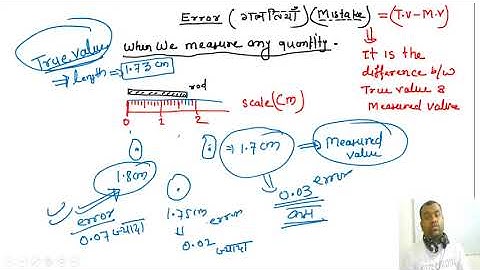 Error (गलतियाँ) (Mistake) = (T.V-M.V)
True value
When we measure any quantity.
It is the
difference b/w
True value &
Measured value
⇒ length = 1.73 cm
rod
scale (cm)
0 1 2
1.8cm
⇒ 1.7 cm ⇒ Measured
value
error
0.07 ज्यादा
1.75cm
error
0.02 ज्यादा
0.03 error
कम